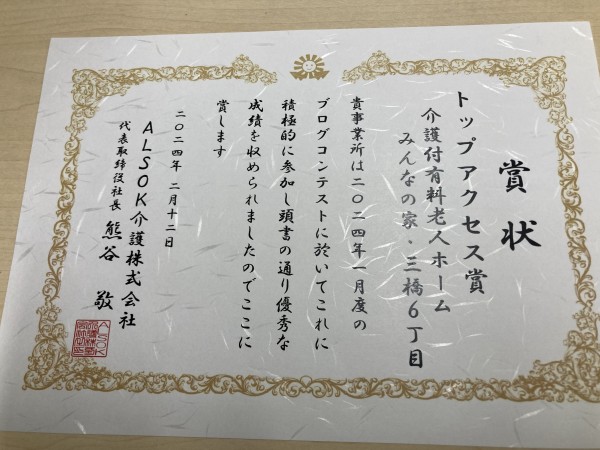 賞状
トップアクセス賞
介護付有料老人ホーム
みんなの家・三橋6丁目
貴事業所は二〇二四年一月度の
ブログコンテストに於いてこれに
積極的に参加し頭書の通り優秀な
成績を収められましたのでここに
賞します
二〇二四年 二月十二日
ALSOK介護株式会社
代表取締役社長 熊谷 敬